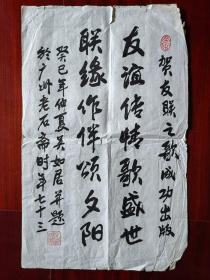 贺友联之歌成功出版
友谊传情歌盛世
联缘作伴颂夕阳
癸巳年仲夏吴如居并题
於广州老石斋时年七十三